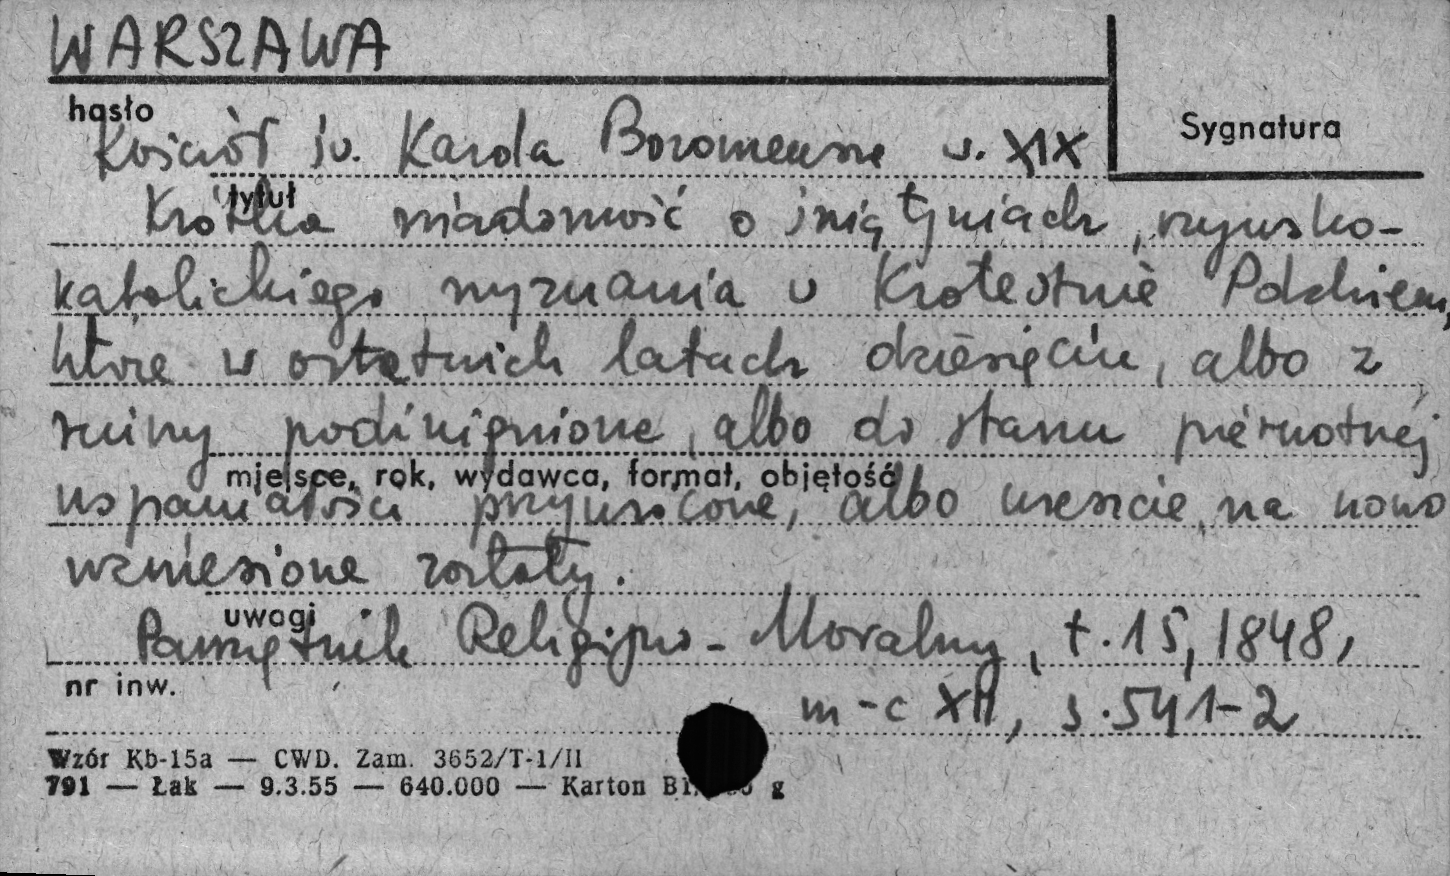 WARSZAWA
hasło
Sygnatura
Kościół św. Karola Boromeusza w. XIX
tytuł
Krótka wiadomość o świątyniach, rzymsko-
katolickiego wyznania w Królestwie Polskiem,
które w ostatnich latach dziesięciu, albo z
ruiny podźwignione, albo do stanu pierwotnej
miejsce, rok, wydawca, format, objętość
wspaniałości przywrócone, albo wreszcie, na nowo
wzniesione zostały.
uwagi
Pamiętnik Religijno-Moralny, t. 15, 1848,
nr inw.
m-c XII, s. 541-2
Wzór Kb-15a — CWD. Zam. 3652/T-1/II
791 — Łak — 9.3.55 — 640.000 — Karton g